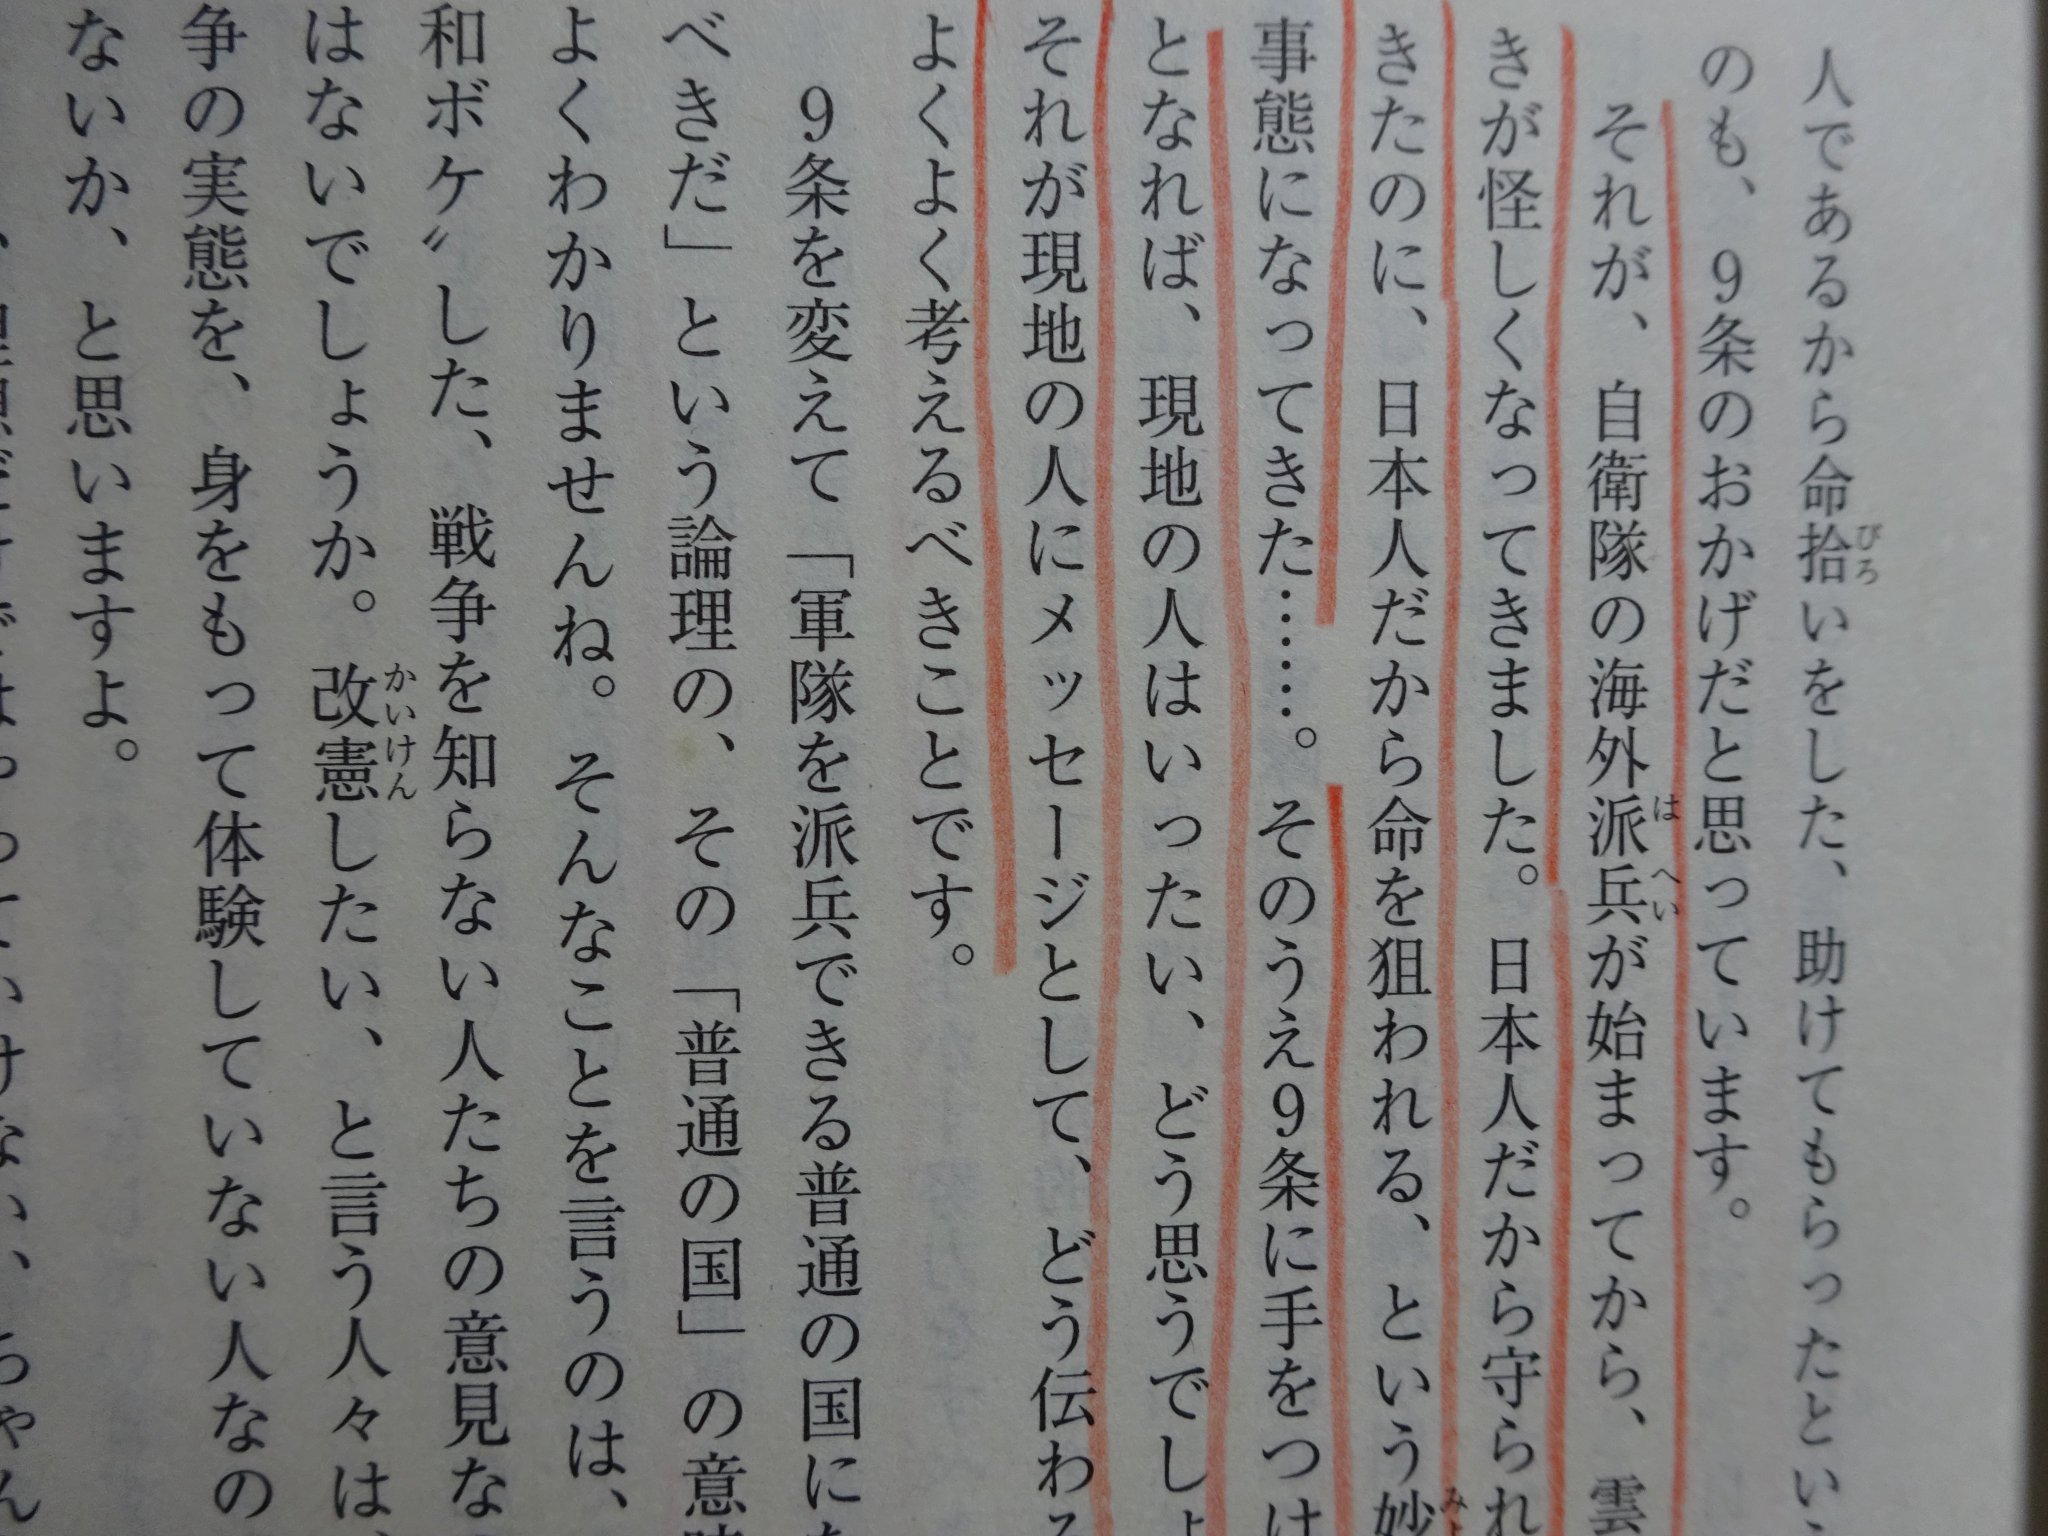 人であるから命拾いをした、助けてもらったとい
のも、9条のおかげだと思っています。
それが、自衛隊の海外派兵が始まってから、雲
きが怪しくなってきました。日本人だから守られ
きたのに、日本人だから命を狙われる、という妙
事態になってきた……。そのうえ9条に手をつけ
となれば、現地の人はいったい、どう思うでしょ
それが現地の人にメッセージとして、どう伝わる
よくよく考えるべきことです。
9条を変えて「軍隊を派兵できる普通の国に
べきだ」という論理の、その「普通の国」の意
よくわかりませんね。そんなことを言うのは、
和ボケ〟した、戦争を知らない人たちの意見な
はないでしょうか。改憲したい、と言う人々は、
争の実態を、身をもって体験していない人なの
ないか、と思いますよ。